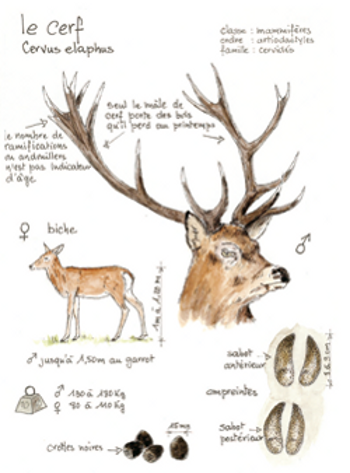 le cerf
Cervus elaphus
classe : mammifères
ordre : artiodactyles
famille : cervidés
seul le mâle de
cerf porte des bois
qu'il perd au printemps
le nombre de
ramifications
ou andouillers
n'est pas indicateur
d'âge
♀ biche
♂
1m à 1,20 m
♂ jusqu'à 1,50m au garrot
♂ 130 à 180 Kg
♀ 80 à 110 Kg
sabot
antérieur
empreintes
sabot
postérieur
crottes noires
15mg